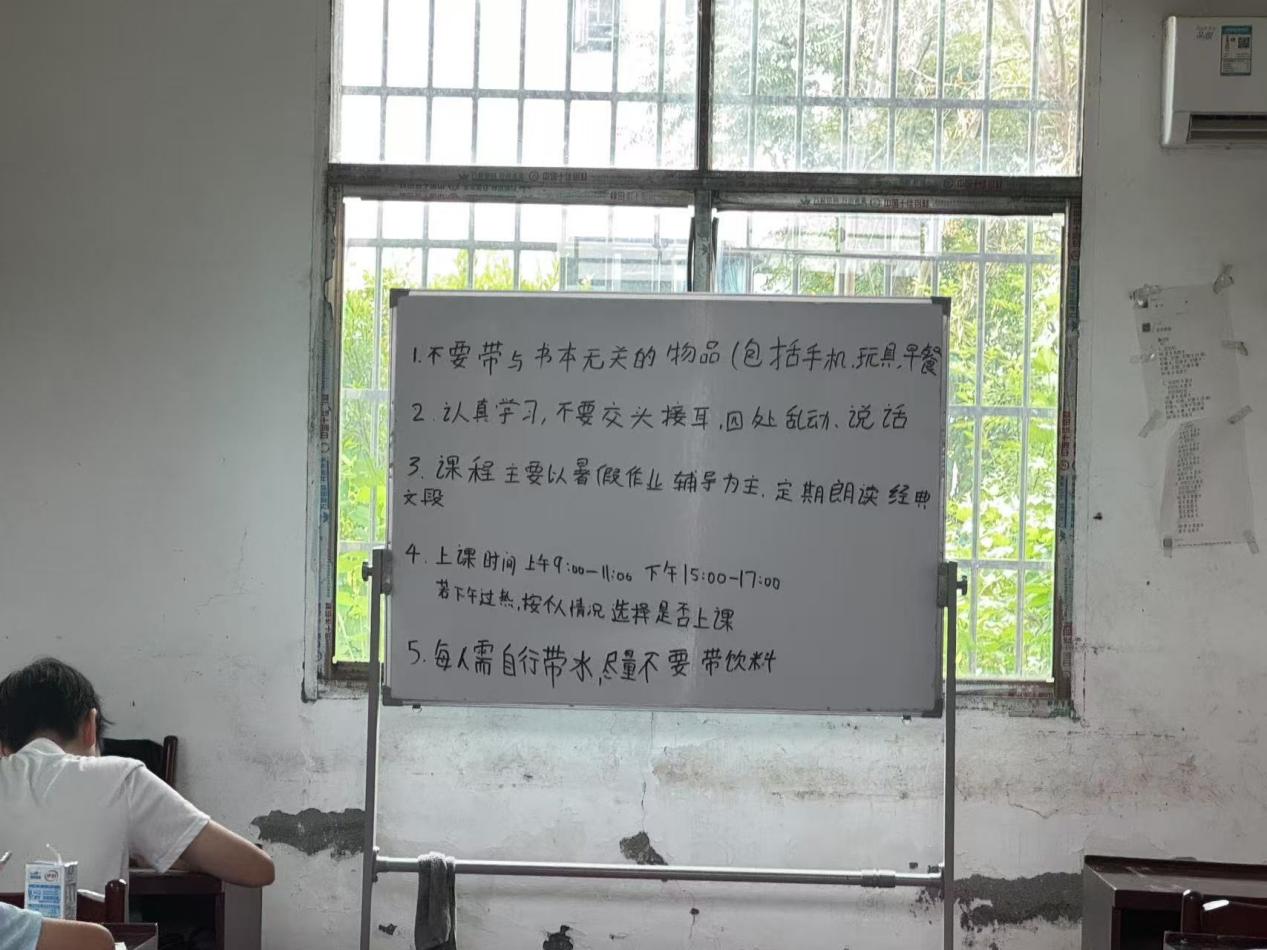 1.不要带与书本无关的物品(包括手机.玩具.早餐
2.认真学习,不要交头接耳,四处乱动、说话
3.课程主要以暑假作业辅导为主.定期朗读经典
文段
4.上课时间 上午9:00-11:00 下午15:00-17:00
若下午过热,按从情况选择是否上课
5.每人需自行带水,尽量不要带饮料
中国十佳铝材
中国十佳铝材